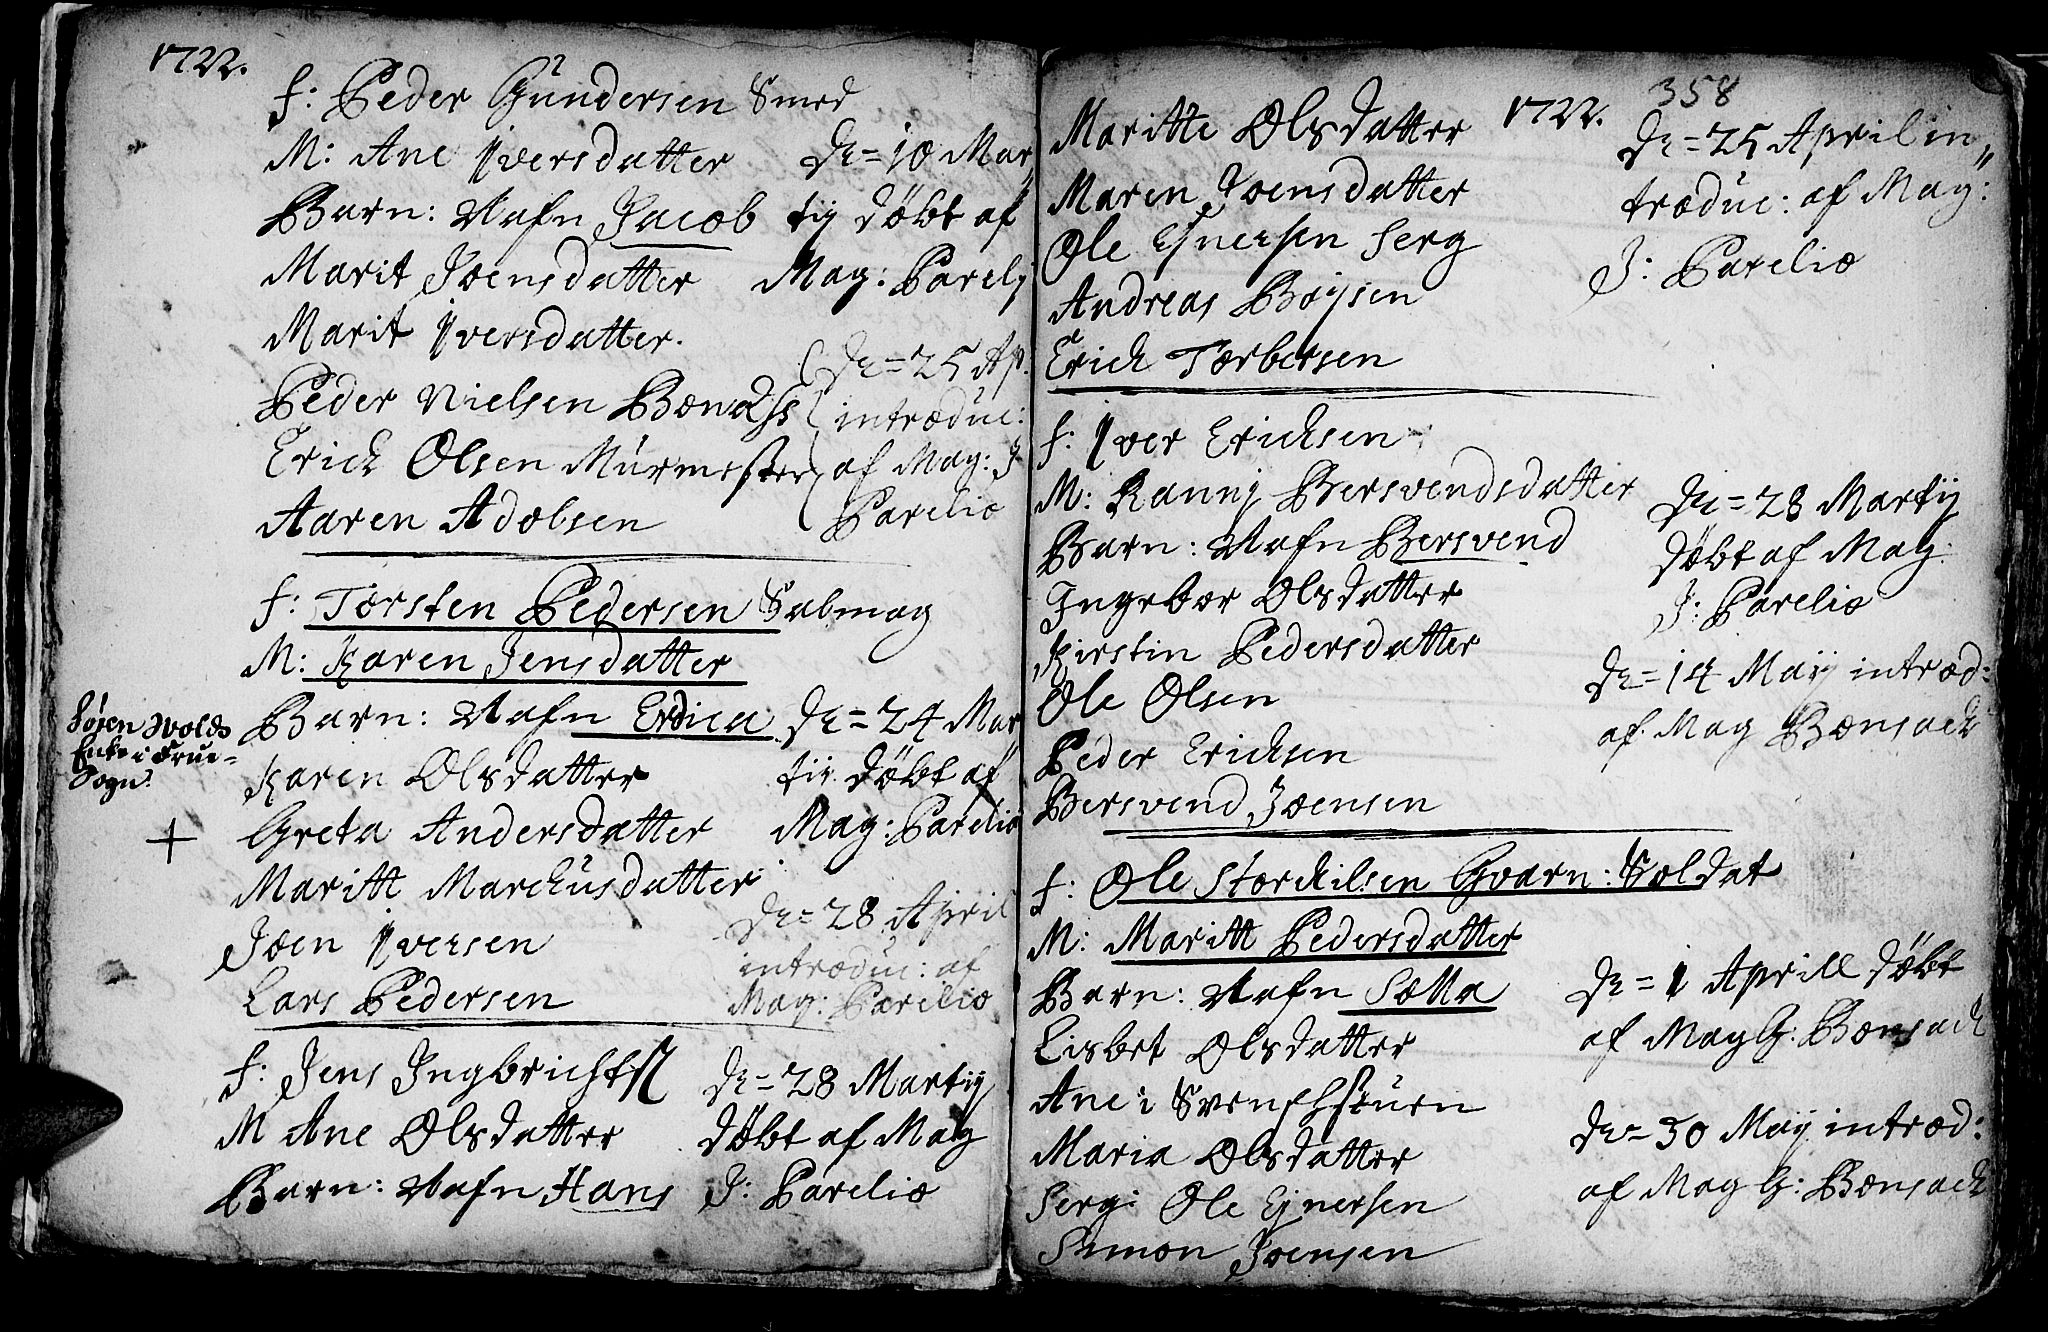 1722.
f: Peder Gundersen Smed
M: Ane Iversdatter
Barn: Nafn Jacob
Marit Joensdatter
Marit Iversdatter.
Peder Nielsen
Erich Olsen Murmester
Aaren Adolsen
De = 10 Mar„
tij døbt af
Mag: Parely
De = 25 Ap.
introduc:
af Mag: J
Parelio
f: Torsten Pedersen
M: Karen Jensdatter
Søren Wolds
Enke i Frue-
Sogn.
Barn: Nafn Erdica
Karen Olsdatter
Greta Andersdatter
Maritt Marchusdatter
Joen Iversen
Lars Pedersen
De = 24 Mar„
tii døbt af
Mag: Parelio
De = 28 April
introduc: af
Mag: Parelio
f: Jens Ingbrichts
M Ane Olsdatter
Barn: Nafn Hans
De = 28 Martij
døbt af Mag
J: Parelio
358
1722.
Maritte Olsdatter
Maren Joensdatter
Ole Ejnersen Serg
Andreas Bøysen
Erich Torbersen
De = 25 April in„
troduc: af Mag:
J: Parelio
f: Iver Erichsen
M: Ranni Bersvendsdatter
Barn: Nafn Bersvend
Ingebor Olsdatter
Kirstin Pedersdatter
Ole Olsen
Peder Erichsen
Bersvend Joensen
De = 28 Martij
døbt af Mag.
J: Parelio
De = 14 Maij introd:
af. Mag Bonsach
f: Ole Storchilsen Gvarn: Soldat
M: Maritt Pedersdatter
Barn: Nafn
Lisbet Olsdatter
Ane i
Maria Olsdatter
Serg: Ole Ejnersen
Simon Joensen
De = 1 Aprill døbt
af Mag G: Bonsach
De = 30 Maij introd:
af Mag G: Bonsach